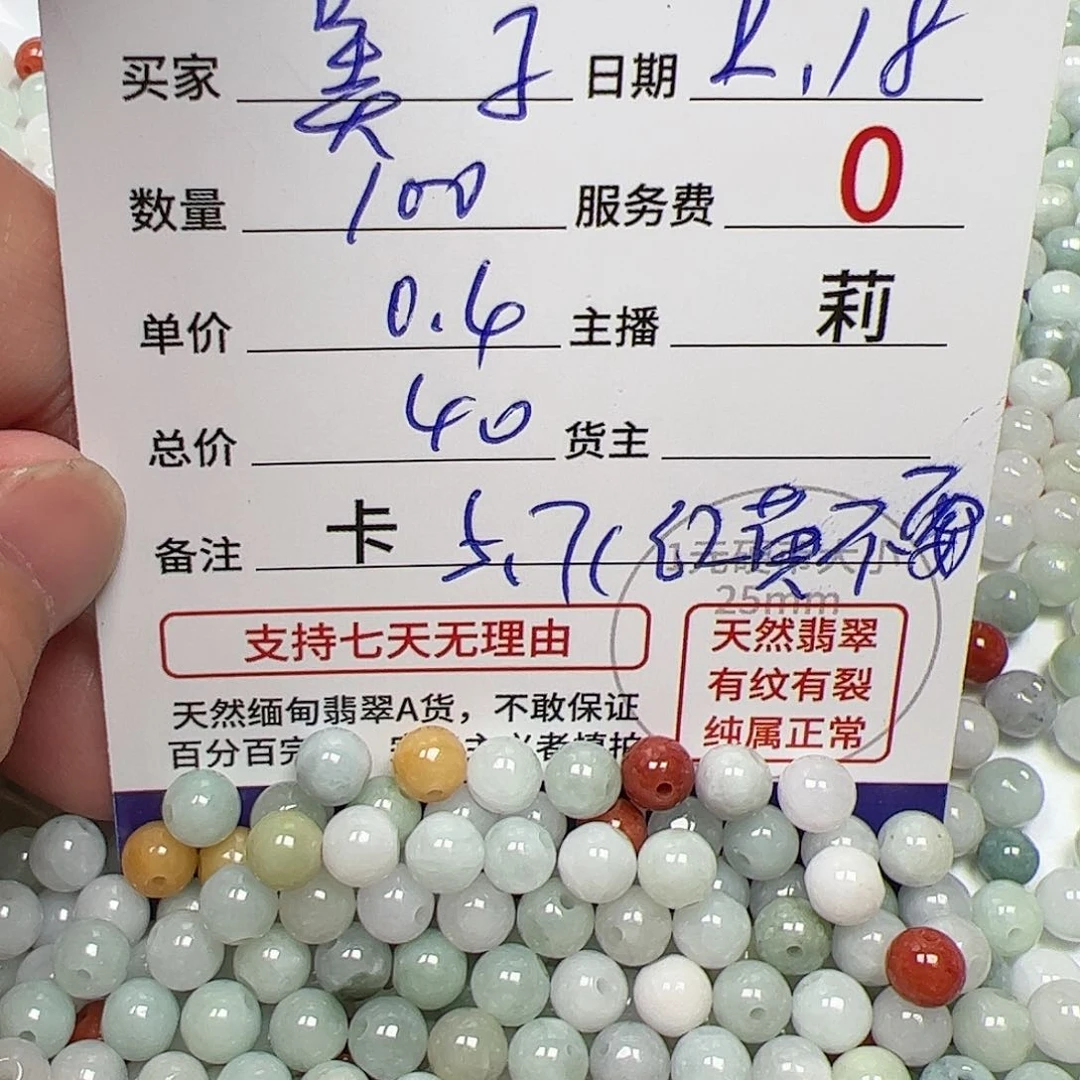 买家 美子 日期 2.18
数量 100 服务费 0
单价 0.4 主播 莉
总价 40 货主
备注 卡 5.7( 红黄不要
1元硬币大小
25mm
支持七天无理由
天然翡翠
有纹有裂
纯属正常
天然缅甸翡翠A货，不敢保证
百分百完